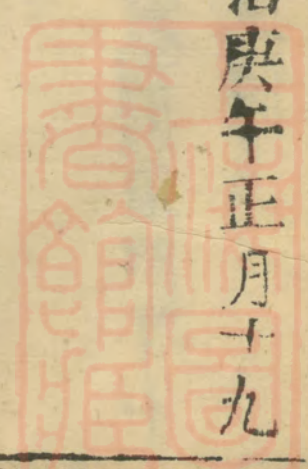 治庚午正月十九
上海圖
書館藏